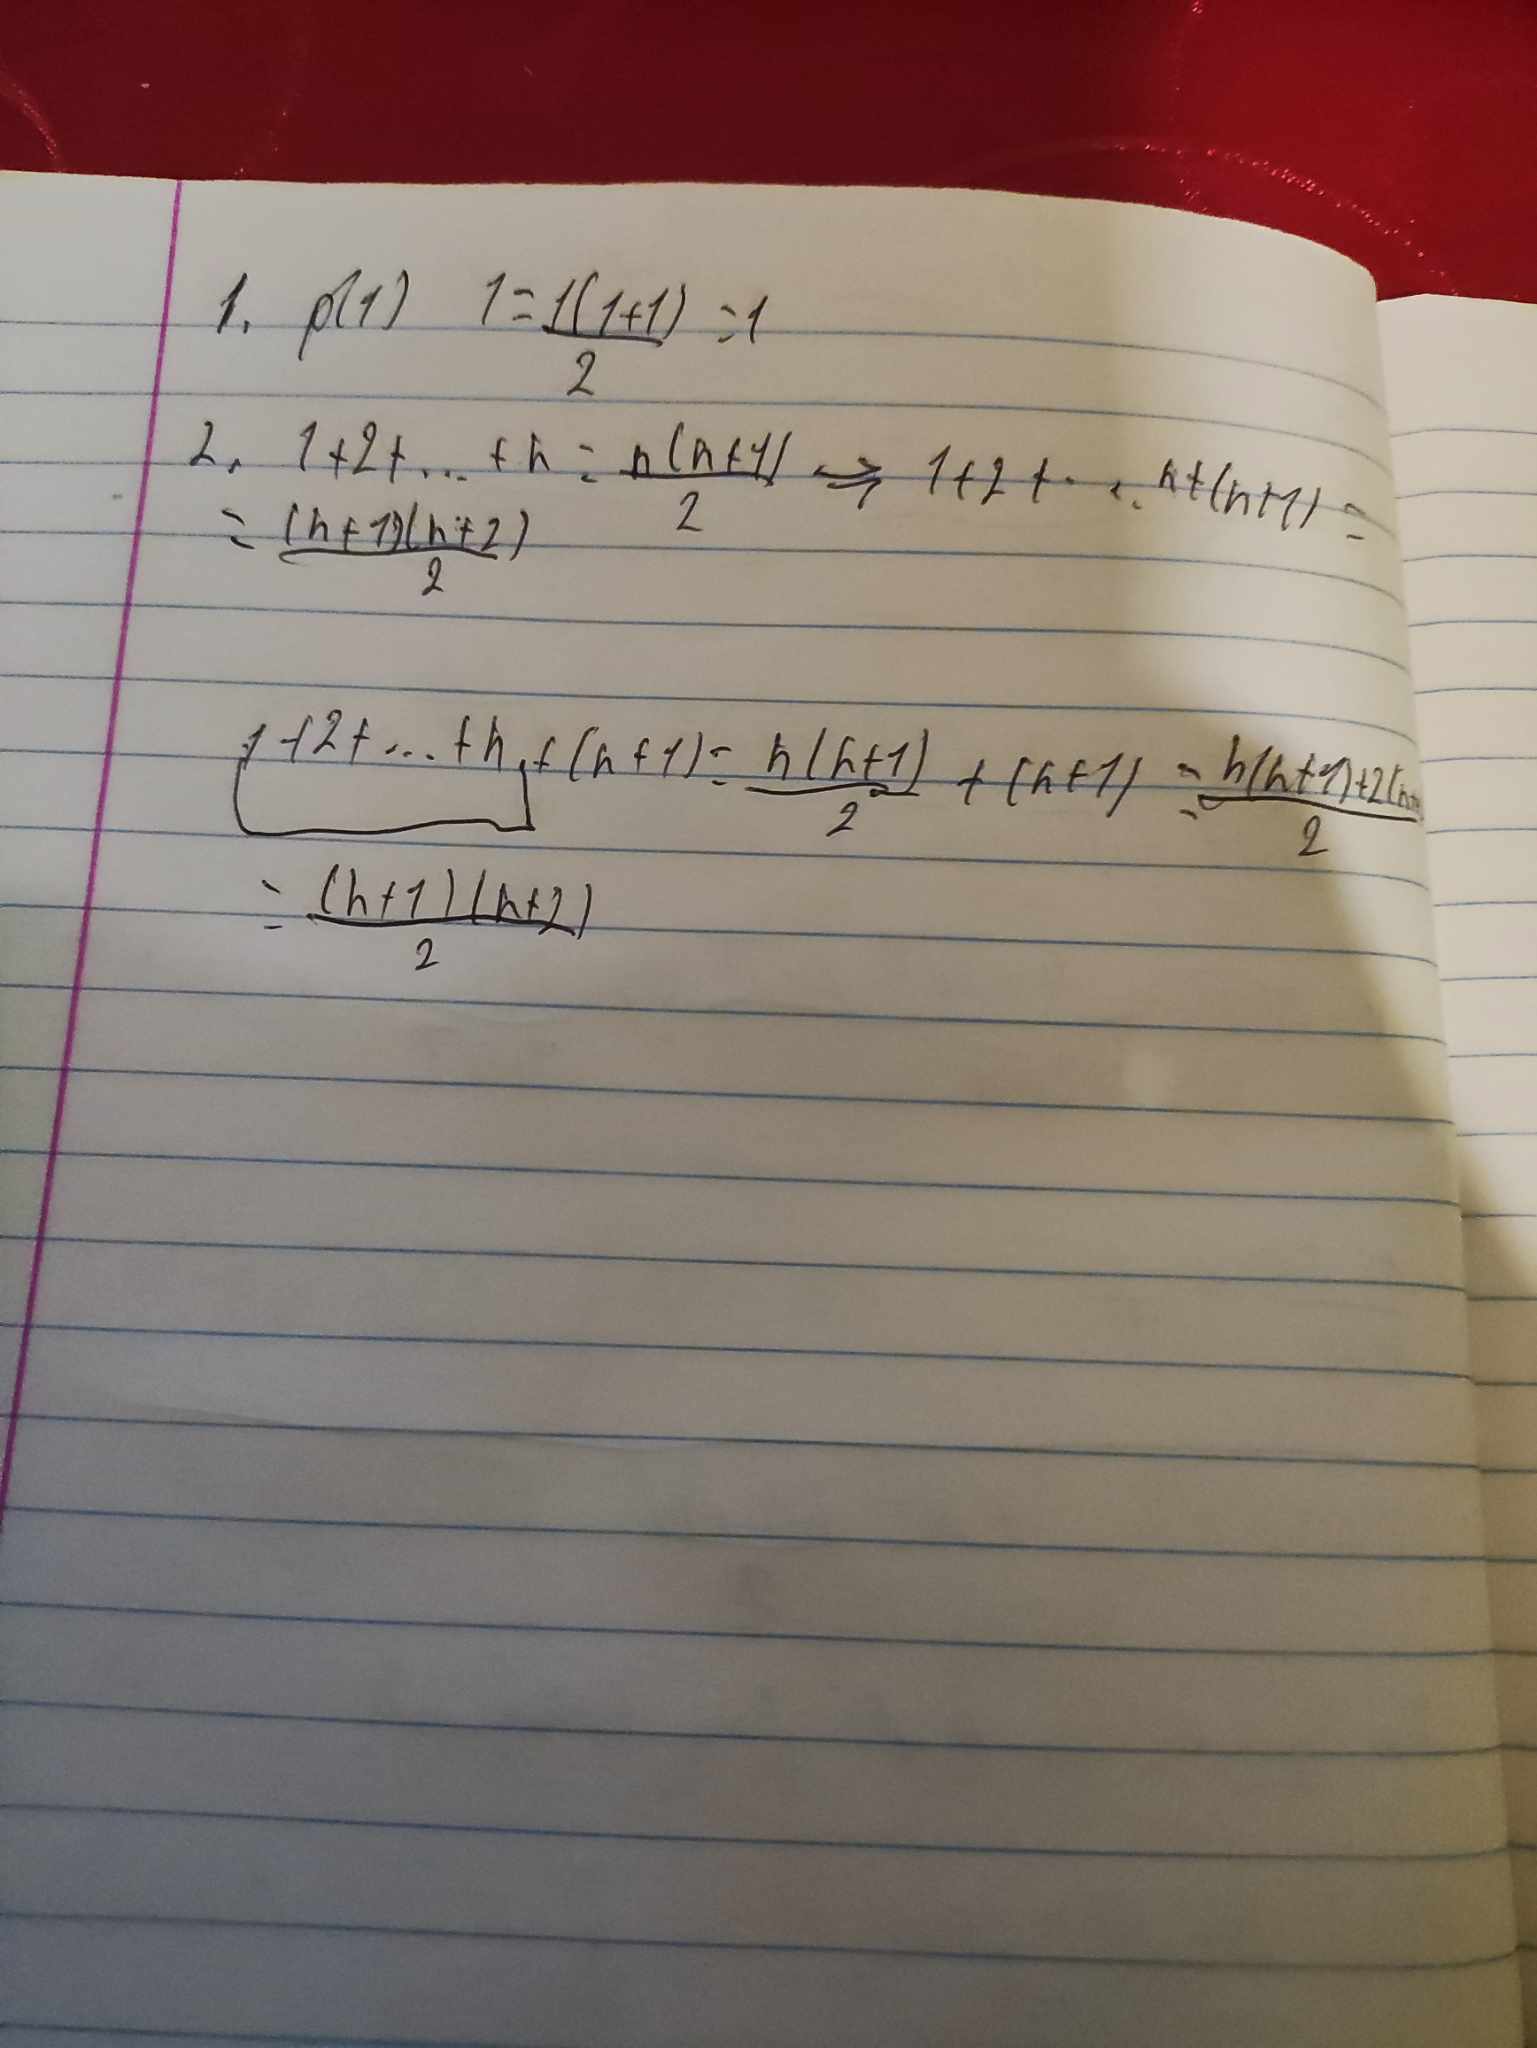 1. p(1) 1 = 1(1+1)/2 = 1
2. 1+2+...+n = n(n+1)/2 ⇒ 1+2+...n+(n+1) =
= (n+1)(n+2)/2
1+2+...+n+(n+1) = n(n+1)/2 + (n+1) = n(n+1)+2(n+1/2
= (n+1)(n+2)/2